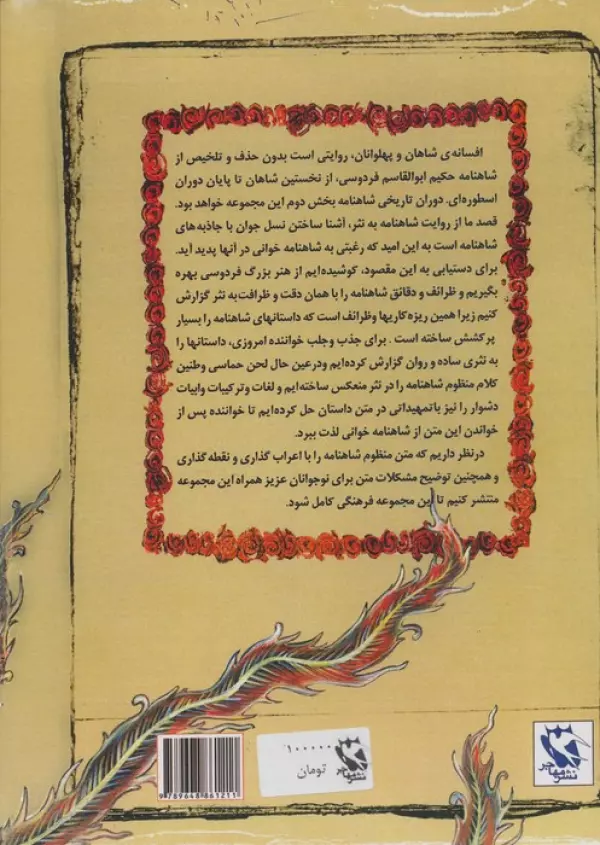 افسانه‌ی شاهان و پهلوانان، روایتی است بدون حذف و تلخیص از
شاهنامه حکیم ابوالقاسم فردوسی، از نخستین شاهان تا پایان دوران
اسطوره‌ای. دوران تاریخی شاهنامه بخش دوم این مجموعه خواهد بود.
قصد ما از روایت شاهنامه به نثر، آشنا ساختن نسل جوان با جاذبه‌های
شاهنامه است به این امید که رغبتی به شاهنامه خوانی در آنها پدید آید.
برای دستیابی به این مقصود، کوشیده‌ایم از هنر بزرگ فردوسی بهره
بگیریم و ظرائف و دقائق شاهنامه را با همان دقت و ظرافت‌به نثر گزارش
کنیم زیرا همین ریزه‌کاریها وظرائف است که داستانهای شاهنامه را بسیار
پرکشش ساخته است . برای جذب وجلب خواننده امروزی، داستانها را
به نثری ساده و روان گزارش کرده‌ایم ودرعین حال لحن حماسی وطنین
کلام منظوم شاهنامه را در نثر منعکس ساخته‌ایم و لغات وترکیبات وابیات
دشوار را نیز باتمهیداتی در متن داستان حل کرده‌ایم تا خواننده پس از
خواندن این متن از شاهنامه خوانی لذت ببرد.
درنظر داریم که متن منظوم شاهنامه را با اعراب گذاری و نقطه گذاری
و همچنین توضیح مشکلات متن برای نوجوانان عزیز همراه این مجموعه
منتشر کنیم تا این مجموعه فرهنگی کامل شود.
۱۰۰۰۰۰
تومان
نشر مهاجر
9 789648 861211
نشر مهاجر